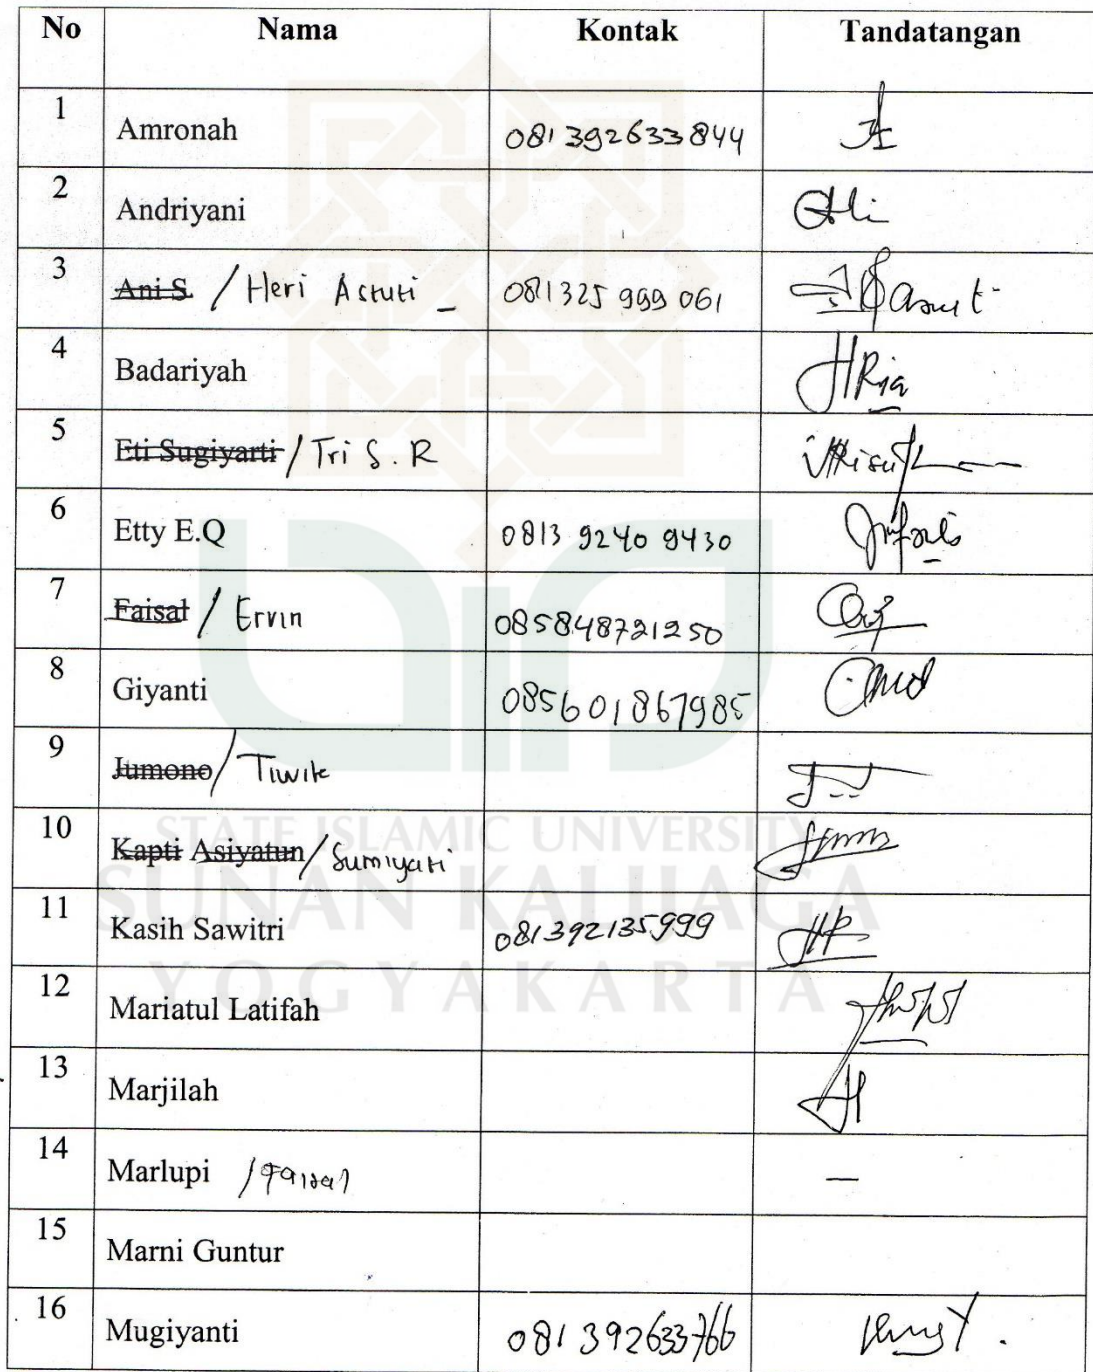 No Nama Kontak Tandatangan
1 Amronah 081392633844
2 Andriyani
3 Ani S. / Heri Astuti 081325 999 061
4 Badariyah
5 Eti Sugiyarti / Tri S. R
6 Etty E.Q 0813 9240 9430
7 Faisal / Ervin 085848721250
8 Giyanti 085601867985
9 Jumono / Tiwik
10 Kapti Asiyatun / Sumiyati
11 Kasih Sawitri 081392135999
12 Mariatul Latifah
13 Marjilah
14 Marlupi / Faisal —
15 Marni Guntur
16 Mugiyanti 081392633766
STATE ISLAMIC UNIVERSITY
SUNAN KALIJAGA
YOGYAKARTA